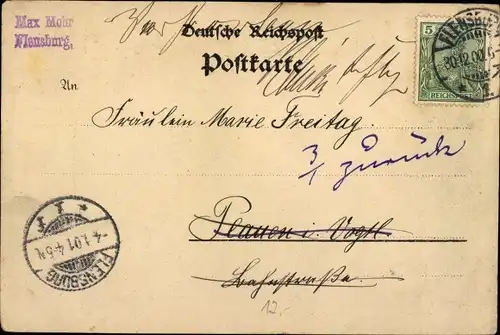 Max Mohr
Flensburg.
Deutsche Reichspost
Postkarte
5
REICHSPOST
FLENSBURG
30.12.00.
An
Fräulein Marie Freitag.
3/1 zurück
Plauen i. Vogtl.
Bahnstraße.
FLENSBURG
-4.1.01.4-5N.
12.